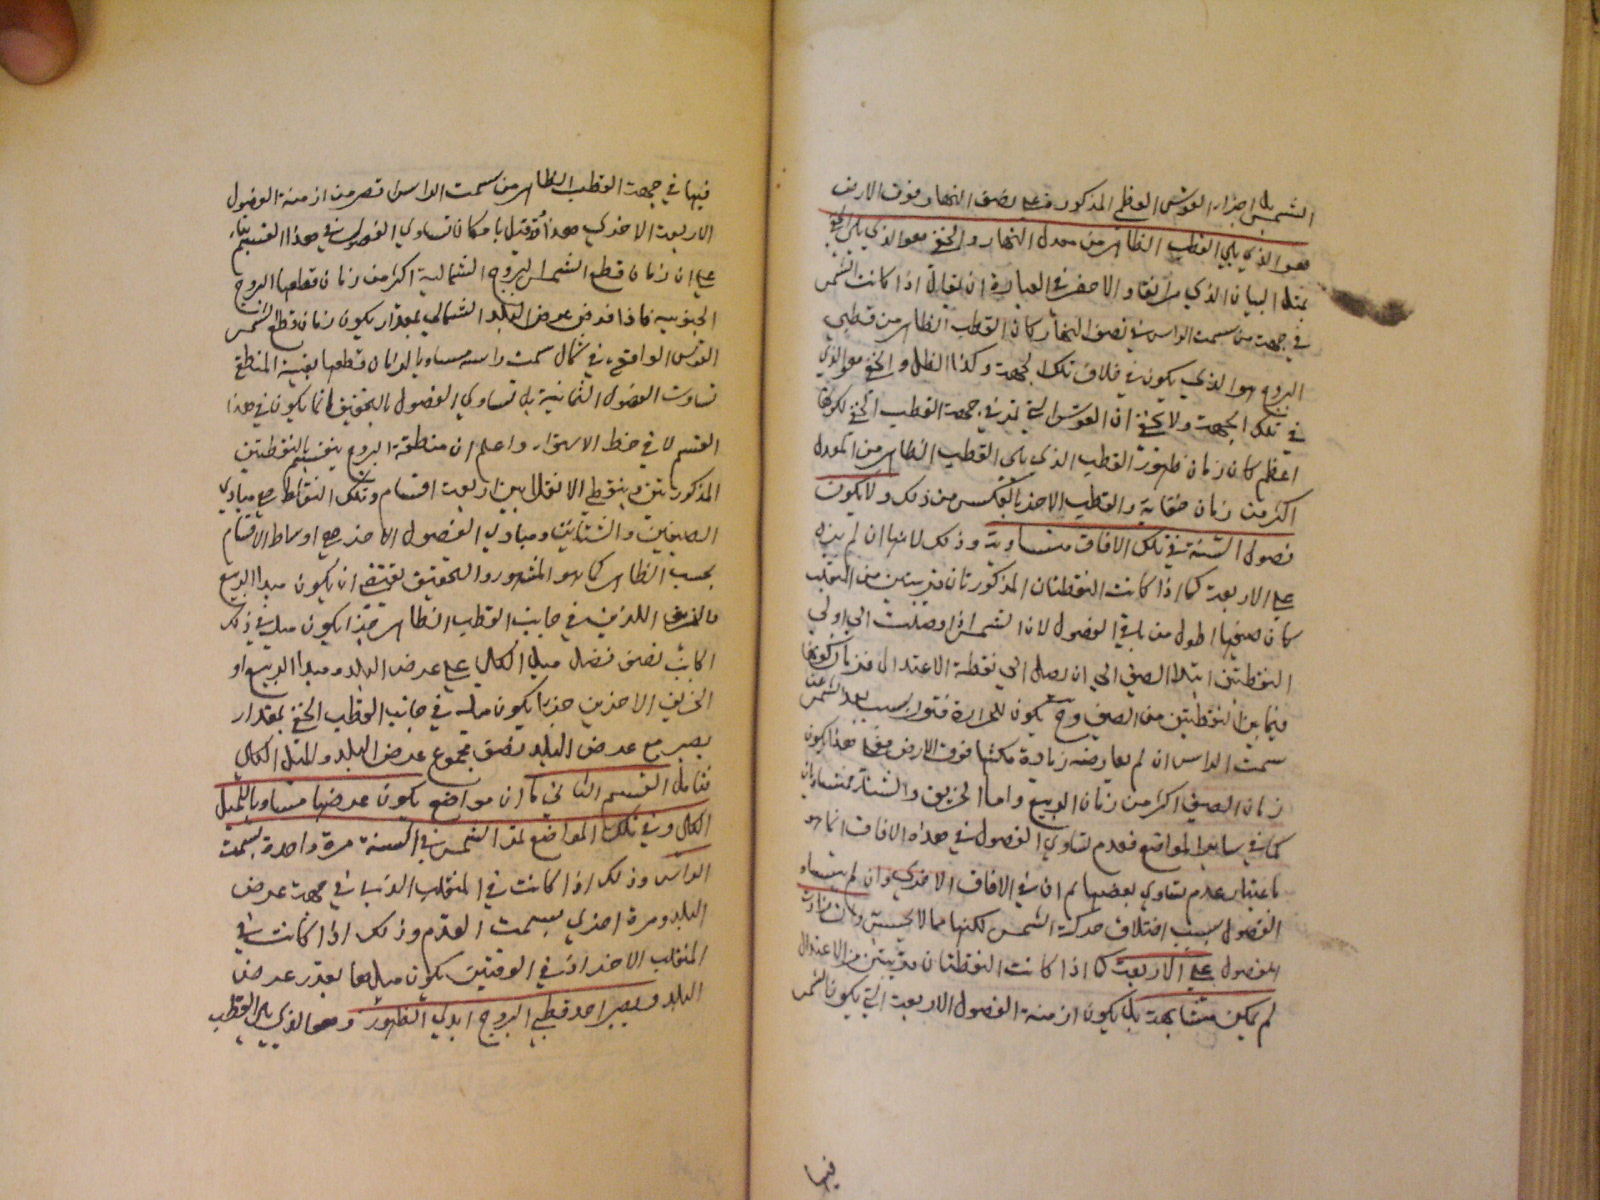 الشمس اجزاء القوس العظمى المذكورة على نصف النهار فوق الارض
هو الذي يلي القطب الظاهر من معدل النهار والخفي هو الذي يلي الخفي
بمثل البيان الذي مر آنفا والاخصر في العبارة ان يقال اذا كانت الشمس
في جهة من سمت الراس في نصف النهار كان القطب الظاهر من قطبي
البروج هو الذي يكون في خلاف تلك الجهة وكذا الظل والخفي هو الذي
في تلك الجهة ولا يخفى ان القوس التي تمر في جهة القطب الخفي لكونها
اعظم كان زمان ظهور القطب الذي يلي القطب الظاهر من المعدل
اكثر من زمان خفائه والقطب الاخر بالعكس من ذلك ولا يكون
فصول السنة في تلك الافاق متساوية وذلك لانها ان لم يزد
على الاربعة كما اذا كانت النقطتان المذكورتان قريبتين من المنقلب
كان صيفها اطول من باقي الفصول لان الشمس اذا وصلت الى اولى
النقطتين ابتدا الصيف الى ان يصل الى نقطة الاعتدال فزمان كونها
فيما بين النقطتين من الصيف وح يكون للحرارة فتور بسبب بعد الشمس عن
سمت الراس ان لم يعارضه زيادة مكثها فوق الارض فعلى هذا يكون
زمان الصيف اكثر من زمان الربيع واما الخريف والشتاء فمتساويان
كما في ساير المواضع فعدم تساوي الفصول في هذه الافاق انما هو
باعتبار عدم تساوي بعضها ثم ان في الافاق الاخرى وان لم يتساو
الفصول بسبب اختلاف حركة الشمس لكنها مما لا يحس وان زادت
الفصول على الاربعة كما اذا كانت النقطتان قريبتين من الاعتدال
لم يكن متشابهة بل يكون ازمنة الفصول الاربعة التي يكون الشمس
فيها
فيها في جهة القطب الظاهر من سمت الراس اقصر من ازمنة الفصول
الاربعة الاخرى هذا وقد قيل بامكان تساوي الفصول في هذا القسم بناء
على ان زمان قطع الشمس البروج الشمالية اكثر من زمان قطعها البروج
الجنوبية فاذا فرض عرض البلد الشمالي بمقدار يكون زمان قطع الشمس
القوس الواقعة في شمال سمت راسه مساويا لزمان قطعها بقية المنطقة
تساوت الفصول الثمانية بل تساوي الفصول بالتحقيق انما يكون في هذا
القسم لا في خط الاستواء واعلم ان منطقة البروج ينقسم بالنقطتين
المذكورتين وبنقطتي الانقلابين اربعة اقسام وتلك النقاط هي مبادي
الصيفين والشتائين ومبادي الفصول الاخر هي اوساط الاقسام
بحسب الظاهر كما هو المشهور والتحقيق يقتضي ان يكون مبدا الربيع
والخريف اللذين في جانب القطب الظاهر حيث يكون ميل في ذلك
الجانب نصف فضل ميل الكلي على عرض البلد ومبدا الربيع او
الخريف الاخرين حيث يكون ميله في جانب القطب الخفي بمقدار
يصير مع عرض البلد نصف مجموع عرض البلد والميل الكلي
القسم الثاني مواضع يكون عرضها مساويا للميل
الكلي وفي تلك المواضع تمر الشمس في السنة مرة واحدة بسمت
الراس وذلك اذا كانت في المنقلب الذي في جهة عرض
البلد ومرة اخرى بسمت القدم وذلك اذا كانت في
المنقلب الاخر اذ في الوقتين يكون ميلها بقدر عرض
البلد ويصير احد قطبي البروج ابدي الظهور وهو الذي يلي القطب